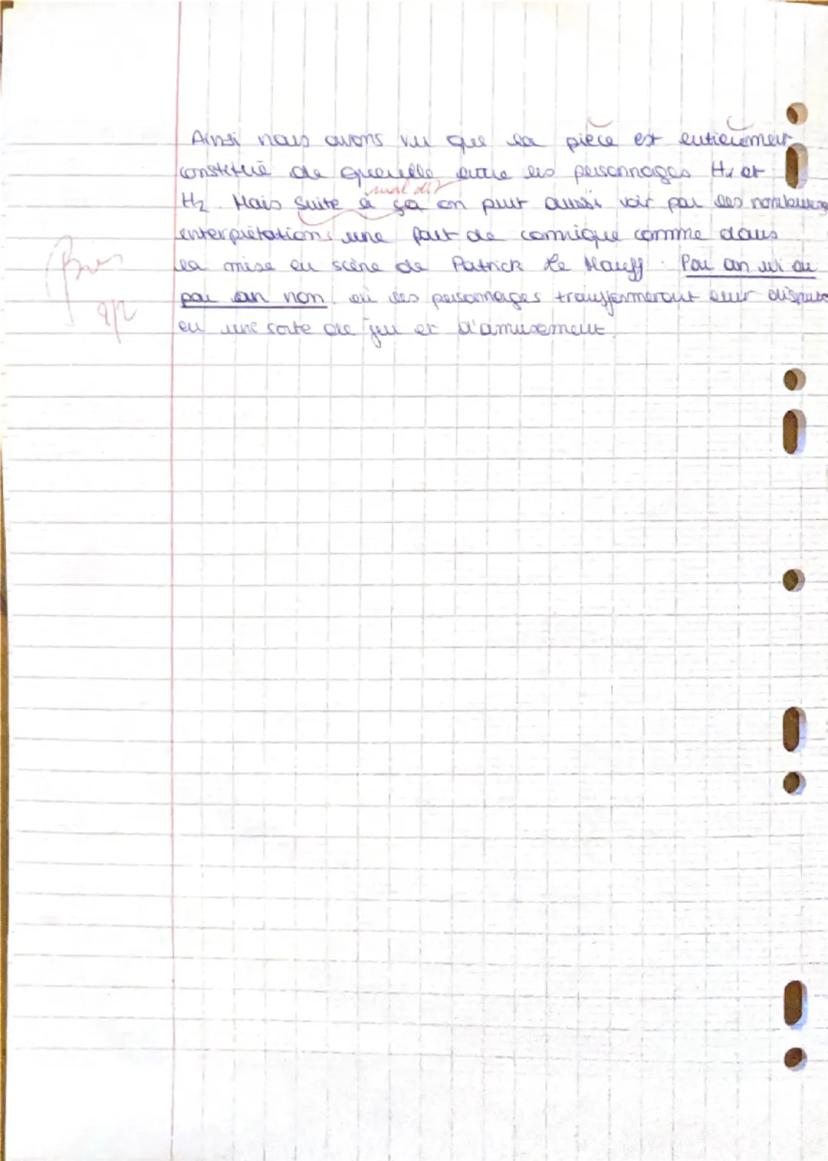 Ainsi nous avons vu que la pièce est entièrement
constitué de querelle entre les personnages H1 et
mal dit
H2. Mais suite à ça on peut aussi voir par les nombreuses
interprétations une part de comique comme dans
la mise en scène de Patrick Le Mauff. Pou un ui ou
pou un non, où les personnages transformeront leur dispute
en une sorte de jeu et d'amusement.
2/2